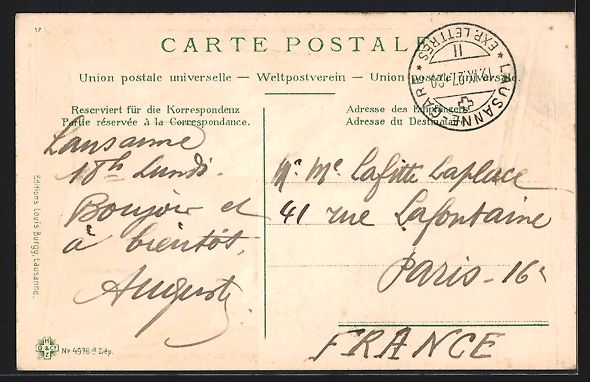 17
CARTE POSTALE
Union postale universelle — Weltpostverein — Union postale universale.
Reserviert für die Korrespondenz
Partie réservée à la Correspondance.
Adresse des Empfängers
Adresse du Destinataire
LAUSANNE-GARE
EXP. LETTRES
II
Lausanne
18h Lundi.
Bonjour et
à bientôt,
Auguste
Mr Me Lafitte Laplace
41 rue Lafontaine
Paris - 16e
FRANCE
Editions Louis Burgy, Lausanne.
No 4976 g Dép.